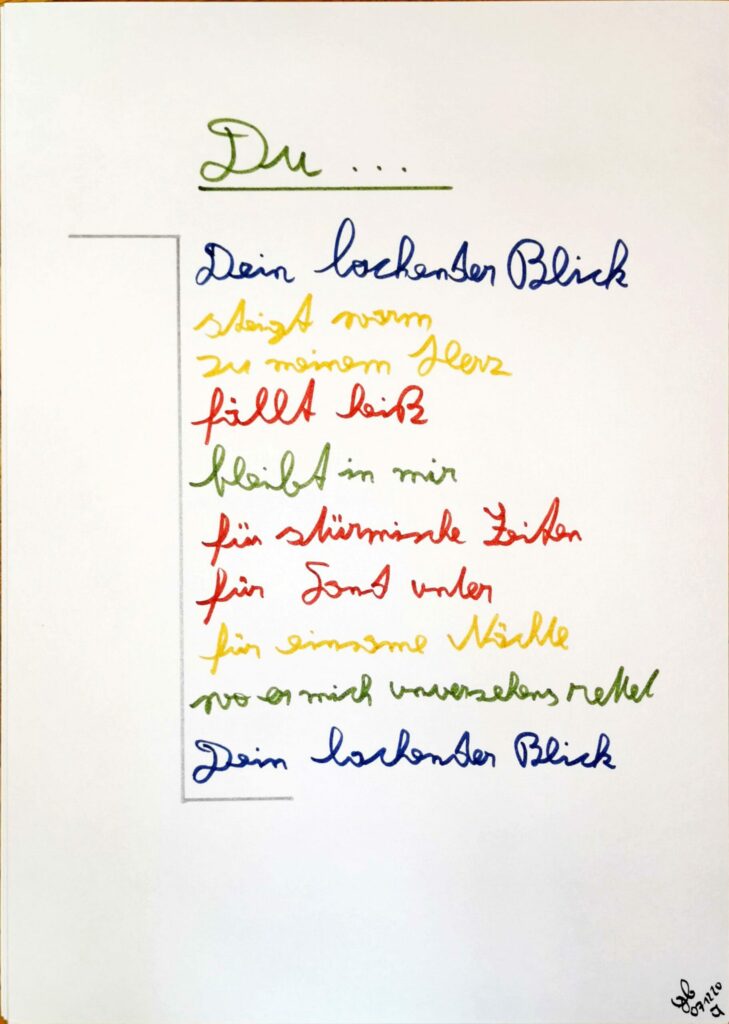 Du ...
Dein lockender Blick
steigt warm
zu meinem Herz
fällt heiß
bleibt in mir
für stürmische Zeiten
für Sand unter
für einsame Nächte
wo er mich unversehens rettet
Dein lockender Blick
07.12.20